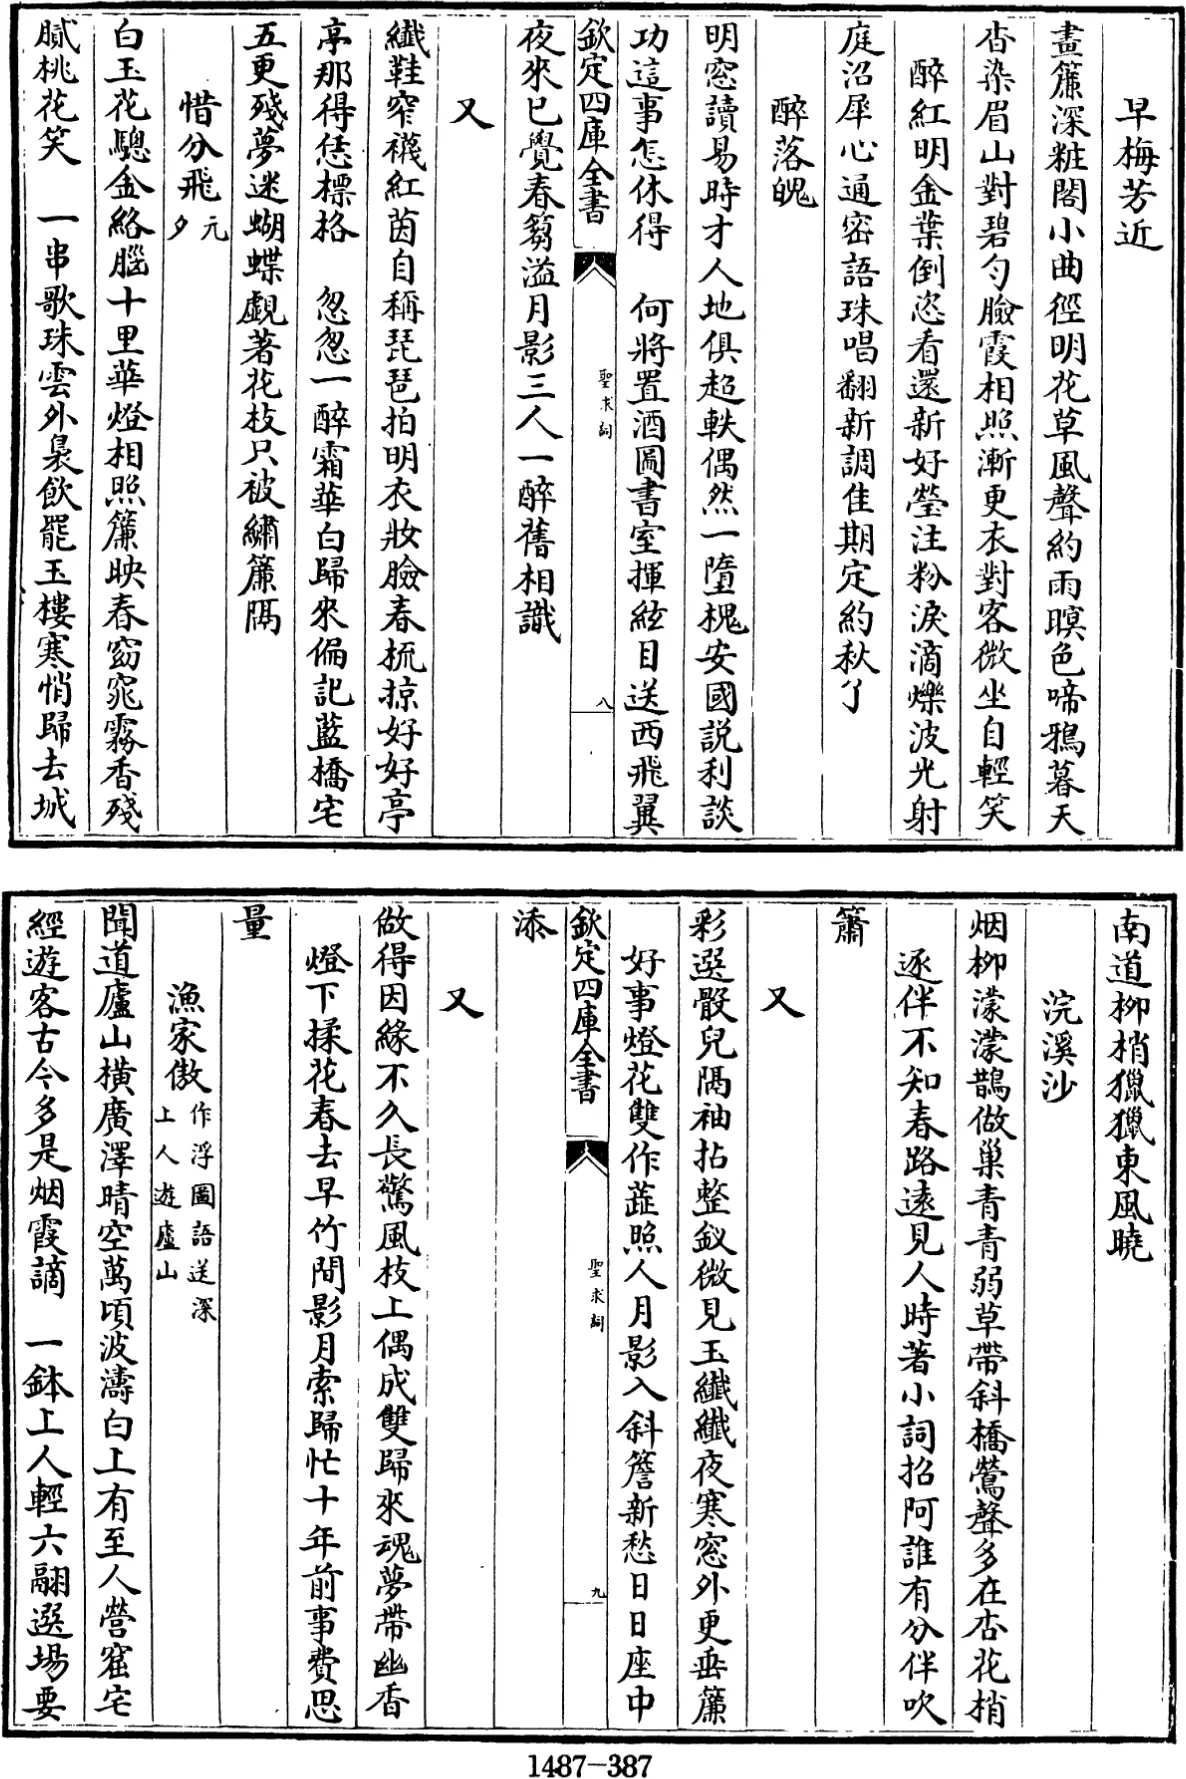 早梅芳近
畫簾深粧閣小曲徑明花草風聲約雨暝色啼鴉暮天
杳染眉山對碧勻臉霞相照漸更衣對客微坐自輕笑
醉紅明金葉倒恣看還新好瑩注粉淚滴爍波光射
庭沼犀心通密語珠唱翻新調佳期定約秋了
醉落魄
明窓讀易時才人地俱超軼偶然一墮槐安國説利談
功這事怎休得　何將置酒圖書室揮絃目送西飛翼
欽定四庫全書
聖求詞
八
夜來已覺春篘溢月影三人一醉舊相識
又
纎鞋窄襪紅茵自稱琵琶拍明衣妝臉春梳掠好好亭
亭那得恁標格　忽忽一醉霜華白歸來偏記藍橋宅
五更殘夢迷蝴蝶覷著花枝只被繡簾隔
惜分飛元夕
白玉花驄金絡腦十里華燈相照簾映春窈窕霧香殘
膩桃花笑　一串歌珠雲外裊飲罷玉樓寒悄歸去城
南道栁梢獵獵東風曉
浣溪沙
烟栁濛濛鵲做巢青青弱草帶斜橋鶯聲多在杏花梢
逐伴不知春路遠見人時著小詞招阿誰有分伴吹
簫
又
彩選骰兒隔袖拈整釵微見玉纎纎夜寒窓外更垂簾
好事燈花雙作蘂照人月影入斜簷新愁日日座中
欽定四庫全書
聖求詞
九
添
又
做得因緣不久長驚風枝上偶成雙歸來魂夢帶幽香
燈下揉花春去早竹間影月索歸忙十年前事費思
量
漁家傲作浮圖語送深
上人遊廬山
聞道廬山横廣澤晴空萬頃波濤白上有至人營窟宅
經遊客古今多是烟霞謫　一鉢上人輕六翮選場要
1487-387